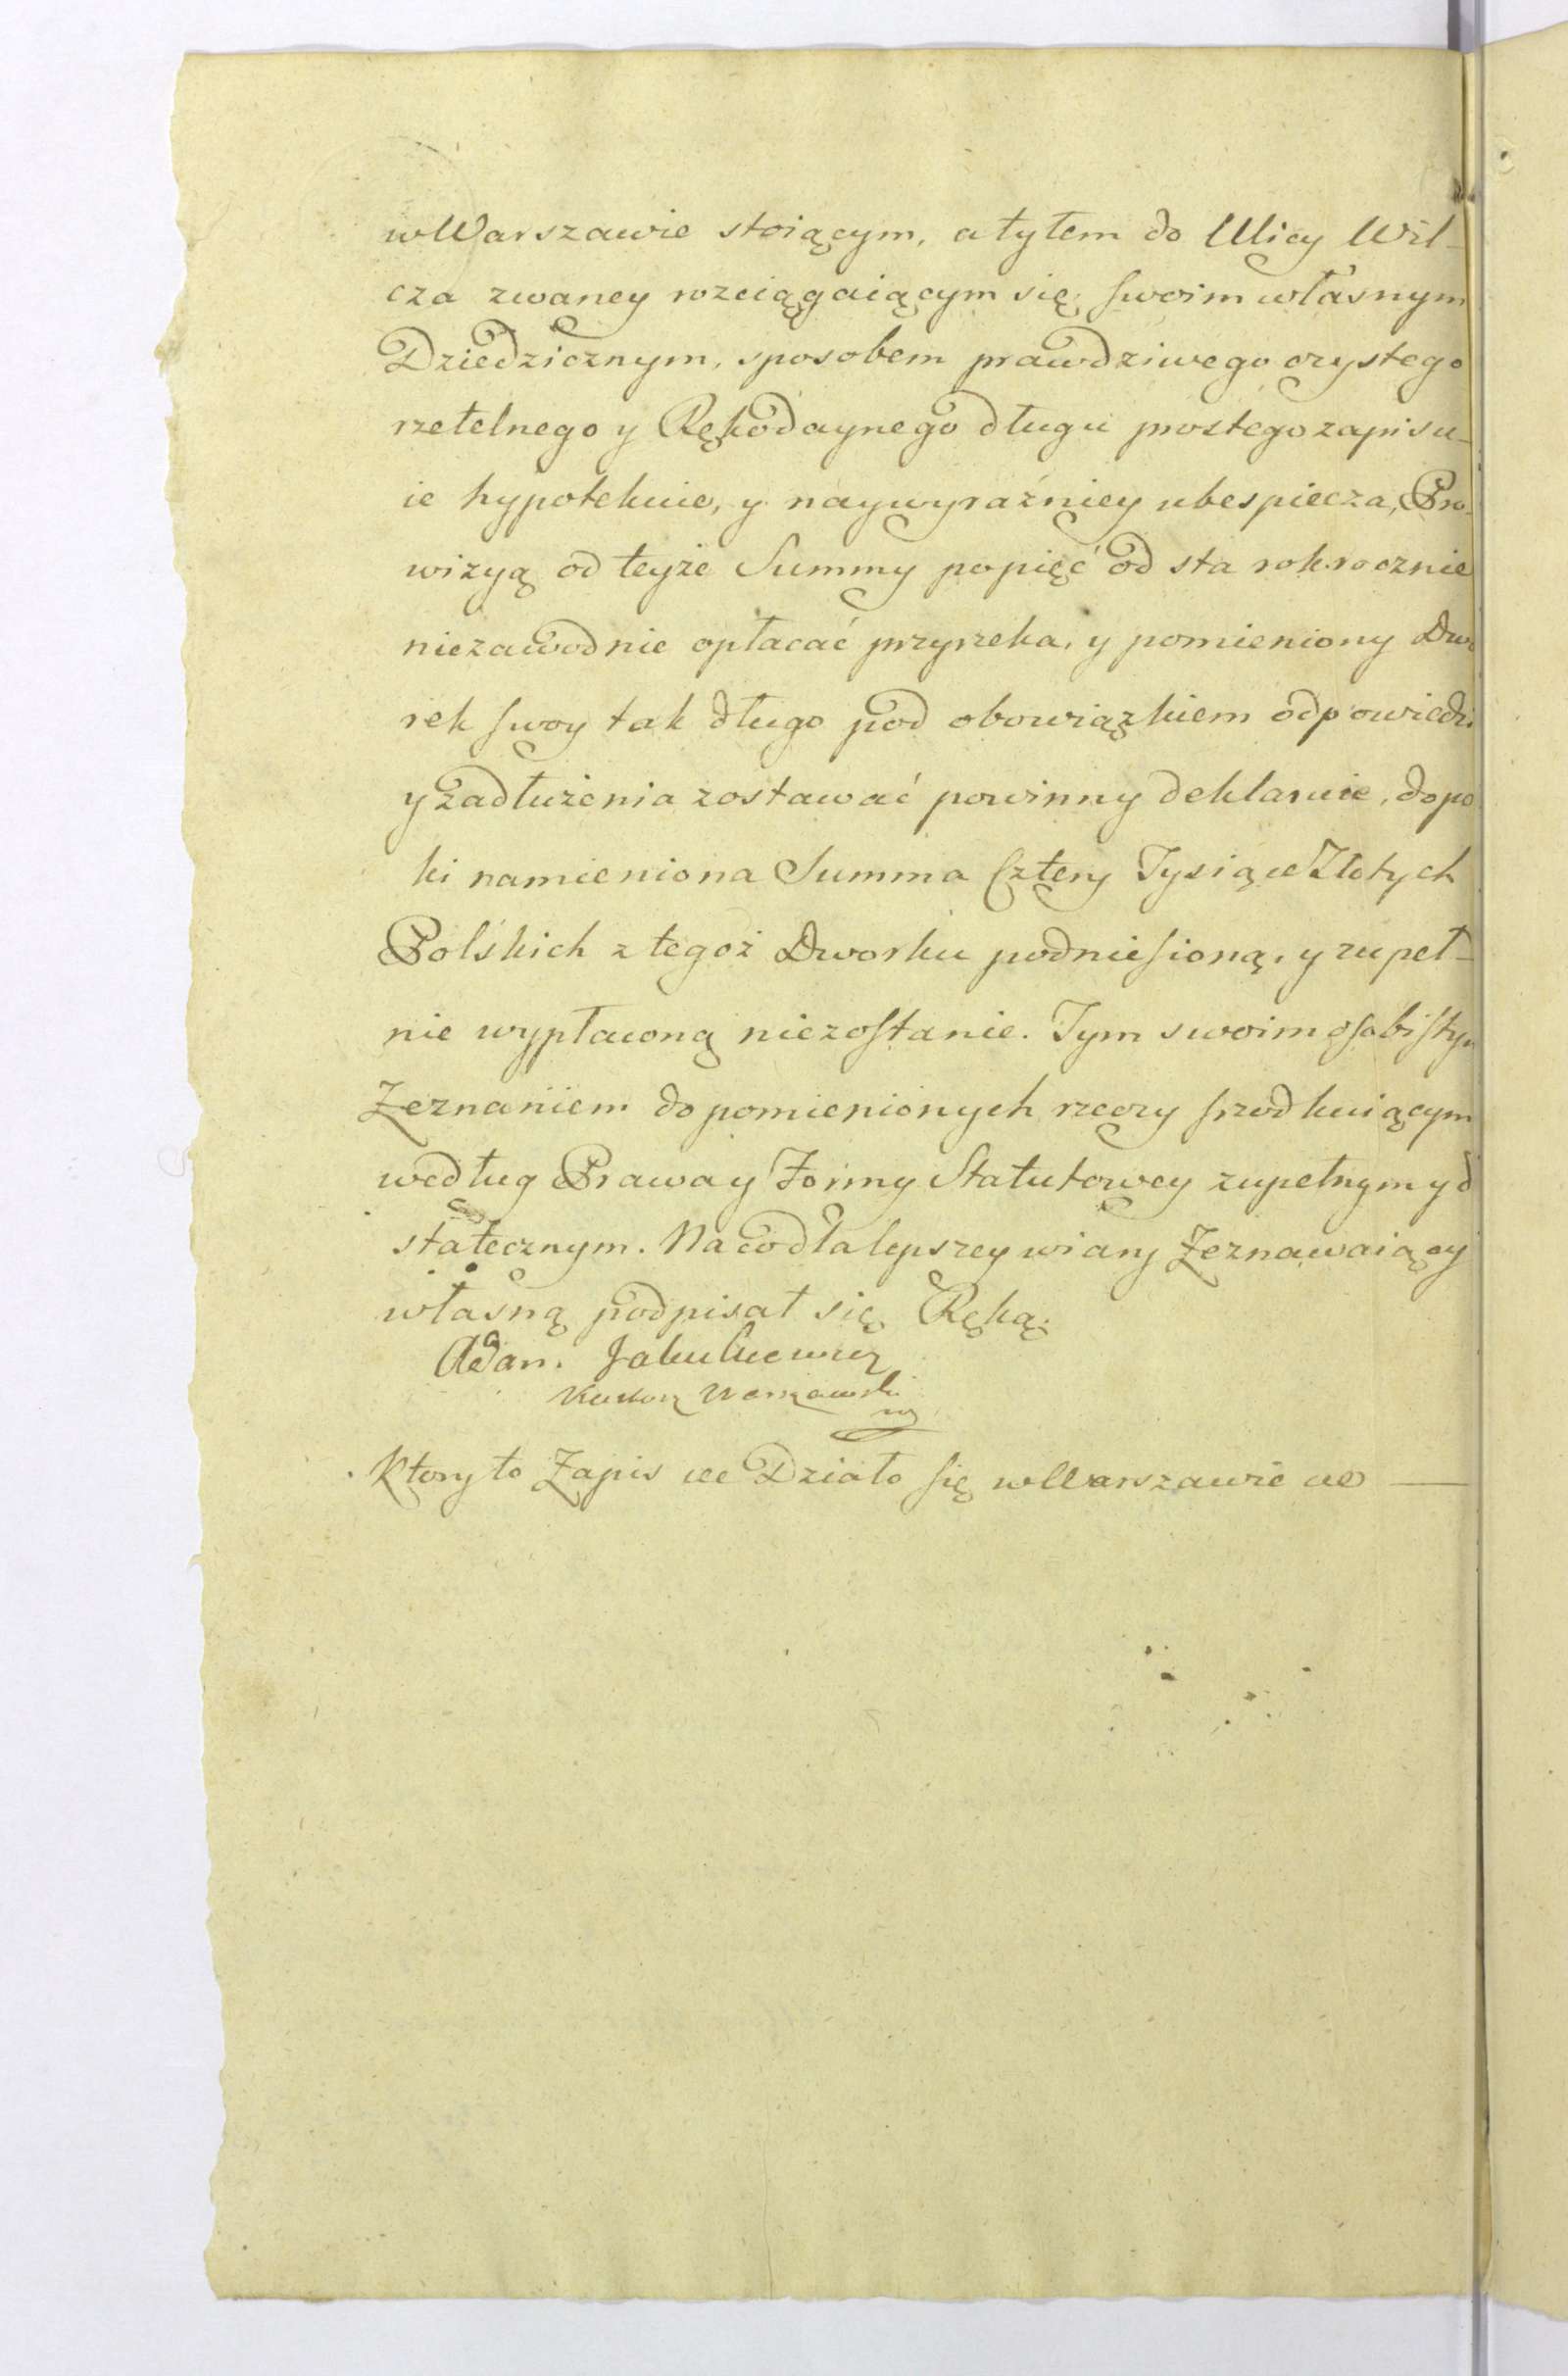 w Warszawie stoiącym, a tyłem do Ulicy Wil-
cza zwaney rozciągaiącym się, swoim własnym
Dziedzicznym, sposobem prawdziwego czystego
rzetelnego y Rękodaynego długu prostego zapisu-
ie hypotekuie, y naywyraźniey ubespiecza, Pro-
wizyą od teyże Summy po pięć od sta rokrocznie
niezawodnie opłacać przyrzeka, y pomieniony Dwo
rek swoy tak długo pod obowiązkiem odpowiedzi
y zadłużenia zostawać powinny deklaruie, dopo
ki namieniona Summa Cztery Tysiące Złotych
Polskich z tegoż Dworku podniesioną, y zupeł-
nie wypłaconą niezostanie. Tym swoim osobistym
Zeznaniem do pomienionych rzeczy srzodkuiącym
według Prawa y Formy Statutowey zupełnym y d
statecznym. Na co dla lepszey wiary Zeznawaiący
własną podpisał się Ręką.
Adam Jakukiewicz
Ktory to Zapis etc Działo się w Warszawie etc